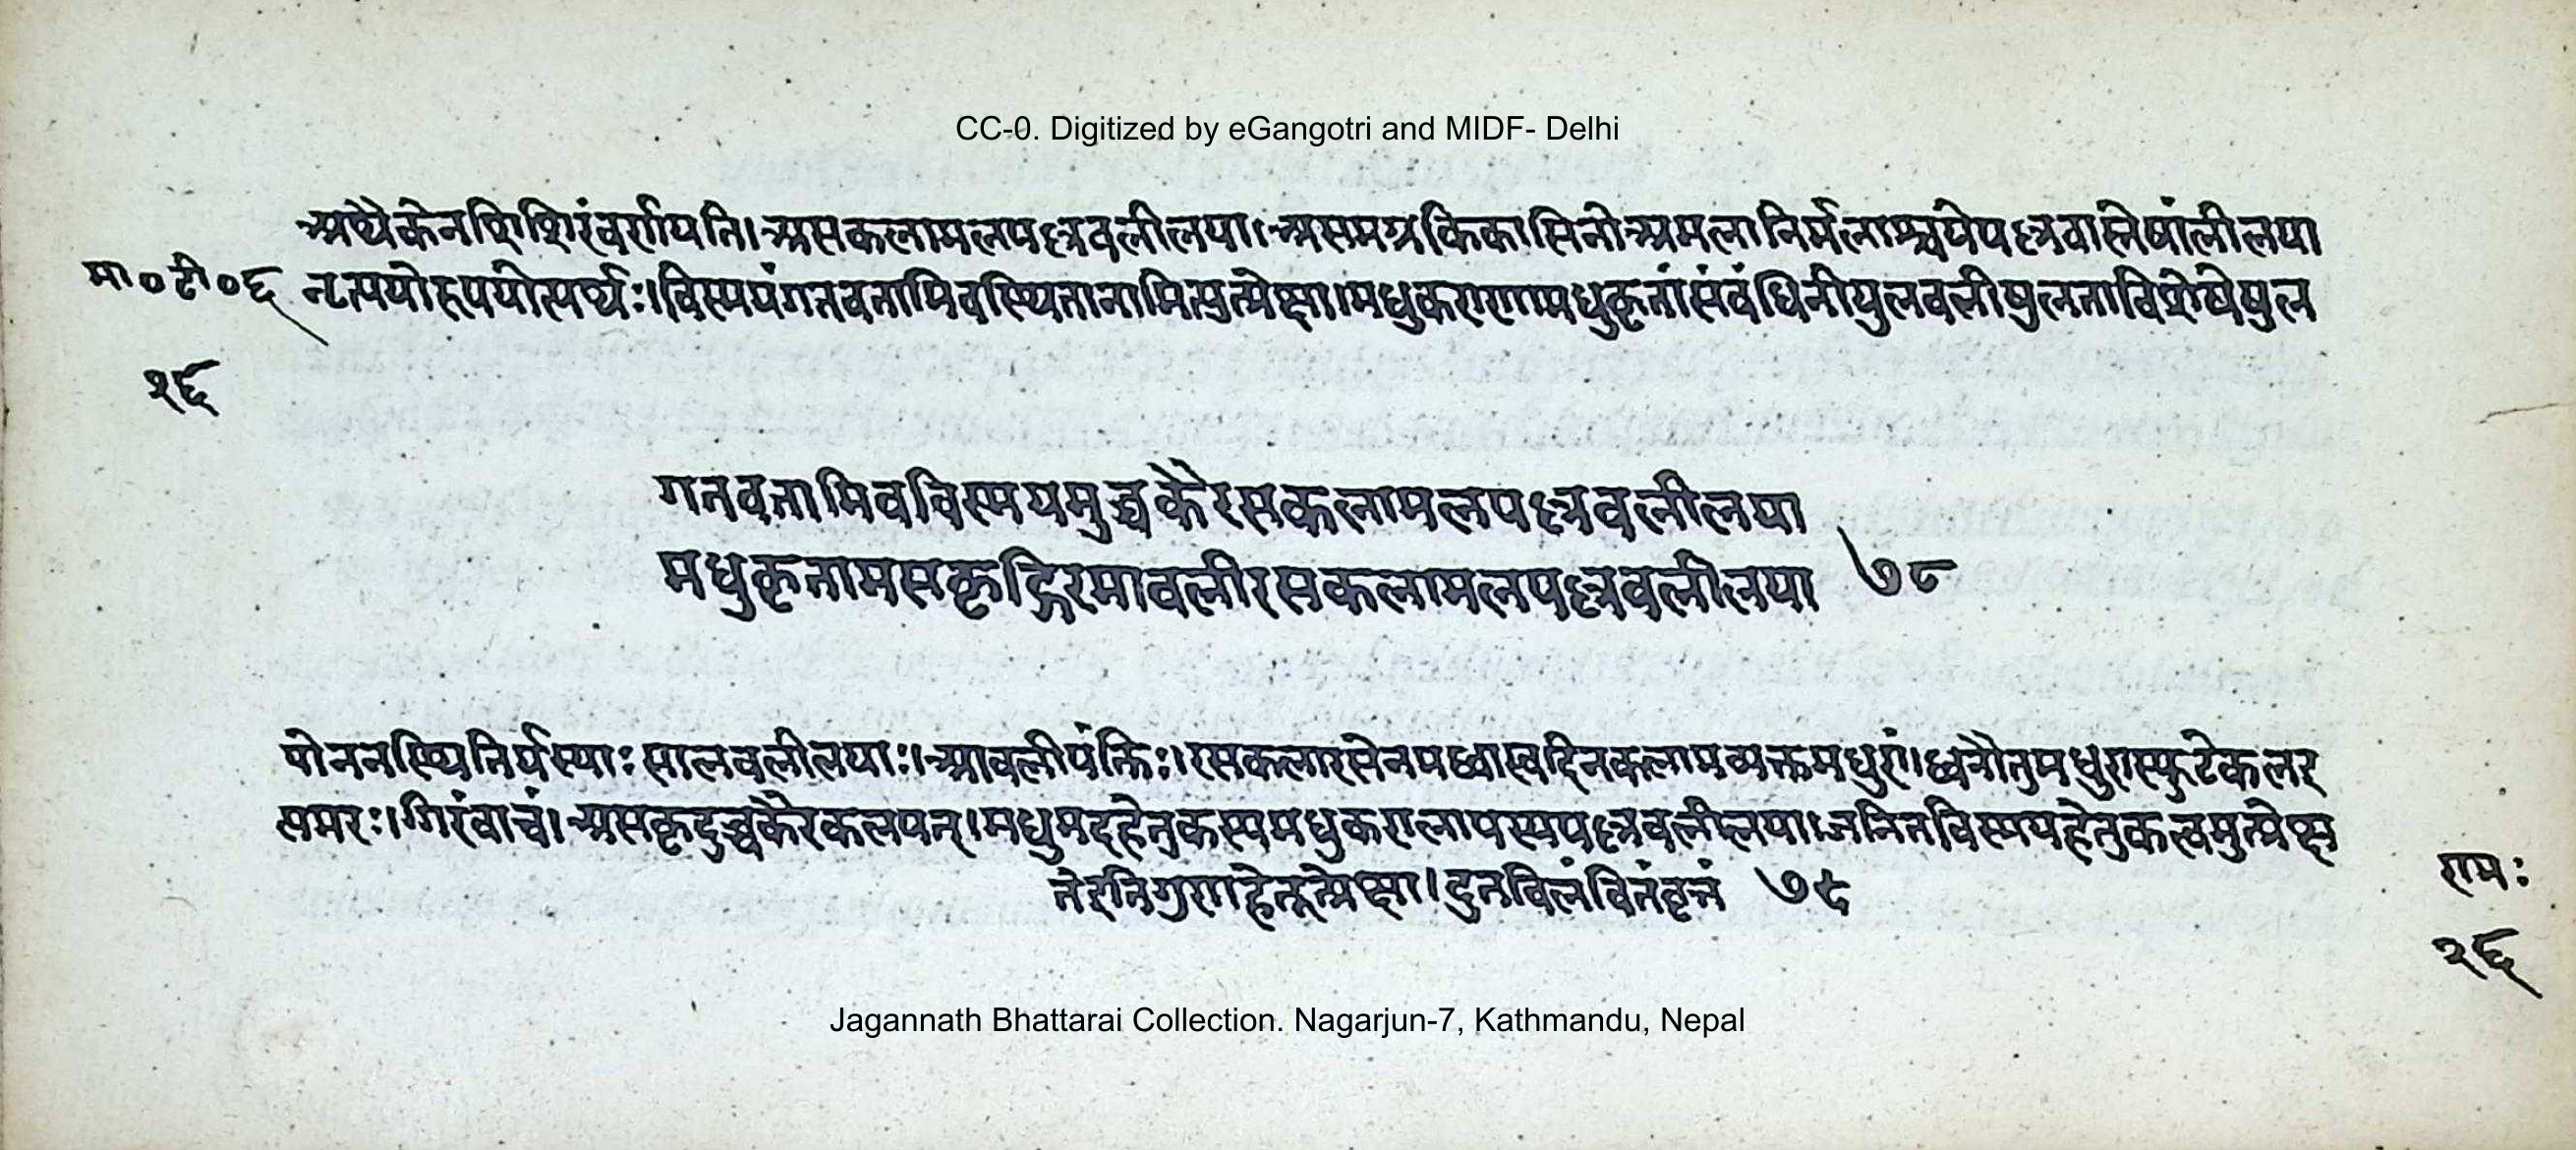 CC-0. Digitized by eGangotri and MIDF- Delhi
अथैकेनशिशिरंवर्णयति।असकलामलपल्लवलीलया।असमग्रविकासिनोअमलानिर्मलाश्चयेपल्लवास्तेषांलीलया
मा०टी०६ नृत्पयोरुपयोत्पर्थः।विस्मयंगतवतामिवस्थितानामित्युत्प्रेक्षा।मधुकराणामधुकृतांसंबंधिनीषुलवलीषुलताविशेषेषुल
१६
गतवतामिवविस्मयमुच्चकैरसकलामलपल्लवलीलया
मधुकृतामसकृद्गिरमावलीरसकलामलपल्लवलीलया ७८
योननस्थितिर्यस्याःसालवलीलयाः।आवलीपंक्तिः।रसकलारसेनमध्वास्वादेनकलामव्यक्तमधुरां।ध्वनौतुमधुरास्फुटेकलर
समरः।गिरंवाचं।असकृदुच्चकैरकलयन्।मधुमदहेतुकस्यमधुकरालापस्यपल्लवलीलया।जनितविस्मयहेतुकत्वमुत्प्रेक्ष
तेइतिगुणहेतूत्प्रेक्षा।द्रुतविलंबितंवृत्तं ७८
रामः
१६
Jagannath Bhattarai Collection. Nagarjun-7, Kathmandu, Nepal